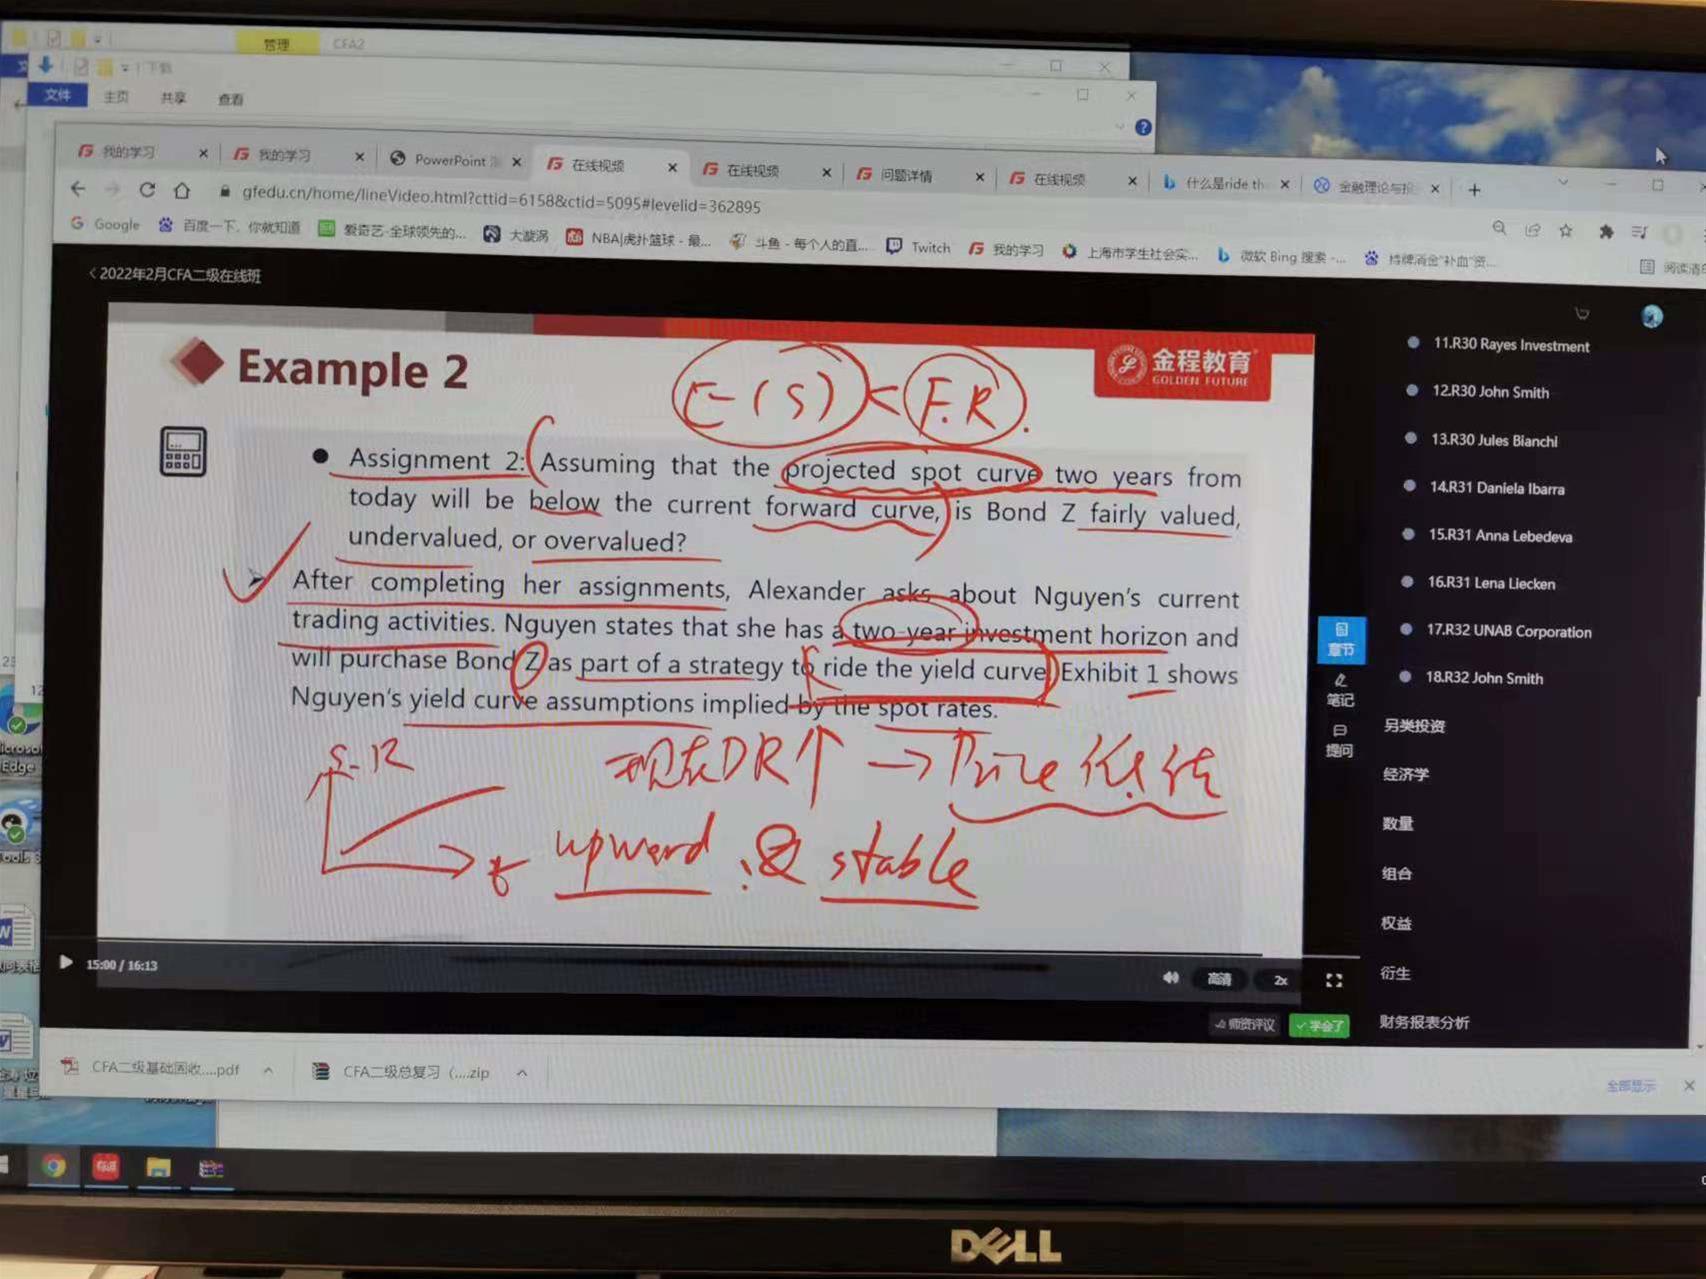 管理 CFA2
下载
文件 主页 共享 查看
我的学习 我的学习 PowerPoint 在线视频 在线视频 问题详情 在线视频 什么是ride th 金融理论与投
gfedu.cn/home/lineVideo.html?cttid=6158&ctid=5095#levelid=362895
Google 百度一下，你就知道 爱奇艺-全球领先的... 大漩涡 NBA|虎扑篮球 - 最... 斗鱼 - 每个人的直... Twitch 我的学习 上海市学生社会实... 微软 Bing 搜索 -... 持牌消金"补血"资...
阅读清
2022年2月CFA二级在线班
Example 2
E(S) < F.R.
金程教育
GOLDEN FUTURE
Assignment 2: Assuming that the projected spot curve two years from
today will be below the current forward curve, is Bond Z fairly valued,
undervalued, or overvalued?
After completing her assignments, Alexander asks about Nguyen's current
trading activities. Nguyen states that she has a two-year investment horizon and
will purchase Bond Z as part of a strategy to ride the yield curve. Exhibit 1 shows
Nguyen's yield curve assumptions implied by the spot rates.
S.R
现在DR↑ → Price 低估
t upward & stable
15:00 / 16:13
高清 2x
师资评议 学会了
11.R30 Rayes Investment
12.R30 John Smith
13.R30 Jules Bianchi
14.R31 Daniela Ibarra
15.R31 Anna Lebedeva
16.R31 Lena Liecken
17.R32 UNAB Corporation
18.R32 John Smith
章节
笔记
提问
另类投资
经济学
数量
组合
权益
衍生
财务报表分析
CFA二级基础固收....pdf CFA二级总复习（....zip
全部显示
Microso
Edge
ools
DELL